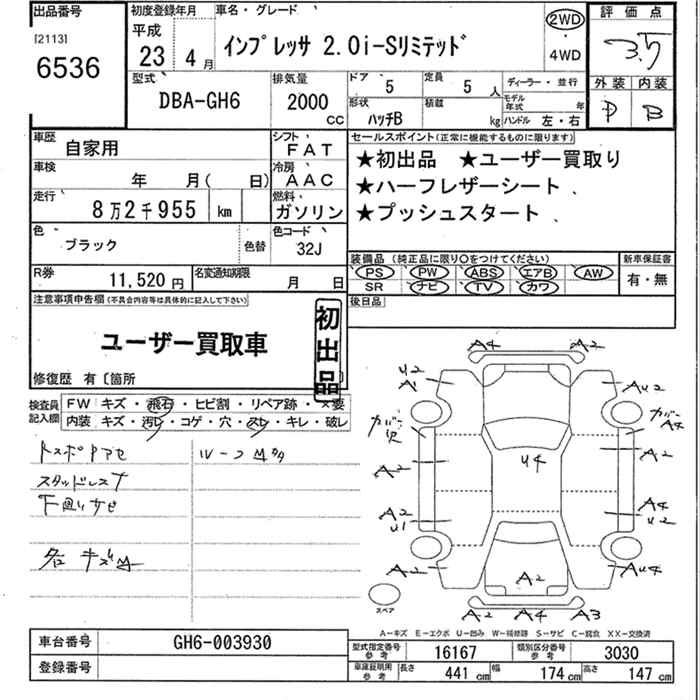 出品番号
[2113]
6536
初度登録年月
平成
23年 4月
車名・グレード
インプレッサ 2.0i-Sリミテッド
2WD
・
4WD
評価点
3.5
外装 内装
D B
型式
DBA-GH6
排気量
2000
CC
ドア 5
定員 5 人
ディーラー・並行
形状 ハッチB
積載 kg
モデル年式 年
ハンドル 左・右
車歴
自家用
シフト
FAT
車検
年 月( 日)
冷房
AAC
走行
8万2千955 km
燃料
ガソリン
色
ブラック
色替
色コード
32J
R券
11,520円
名変通知期限
月 日
セールスポイント(正常に機能するものに限ります)
★初出品 ★ユーザー買取り
★ハーフレザーシート
★プッシュスタート
装備品 (純正品に限り○をつけてください)
PS PW ABS エアB AW
SR ナビ TV カワ
新車保証書
有・無
後日品
注意事項申告欄(不具合内容等は具体的に記入して下さい)
ユーザー買取車
初出品
修復歴 有〔箇所
検査員記入欄
FW キズ・飛石・ヒビ割・リペア跡・×要
内装 キズ・汚レ・コゲ・穴・スレ・キレ・破レ
スタッドレスT
下廻りサビ
A4 A2
U2
A1
AU2
カバー
A4
A2
U4
A2
A2
U1
A4
U2
A2
AU4
A2
A2 A4 A3
スペア
A-キズ E-エクボ U-凹み W-補修跡 S-サビ C-腐食 XX-交換済
車台番号
GH6-003930
登録番号
型式指定番号 参考
16167
類別区分番号 参考
3030
車庫証明用 参考
長さ 441 cm
幅 174 cm
高さ 147 cm